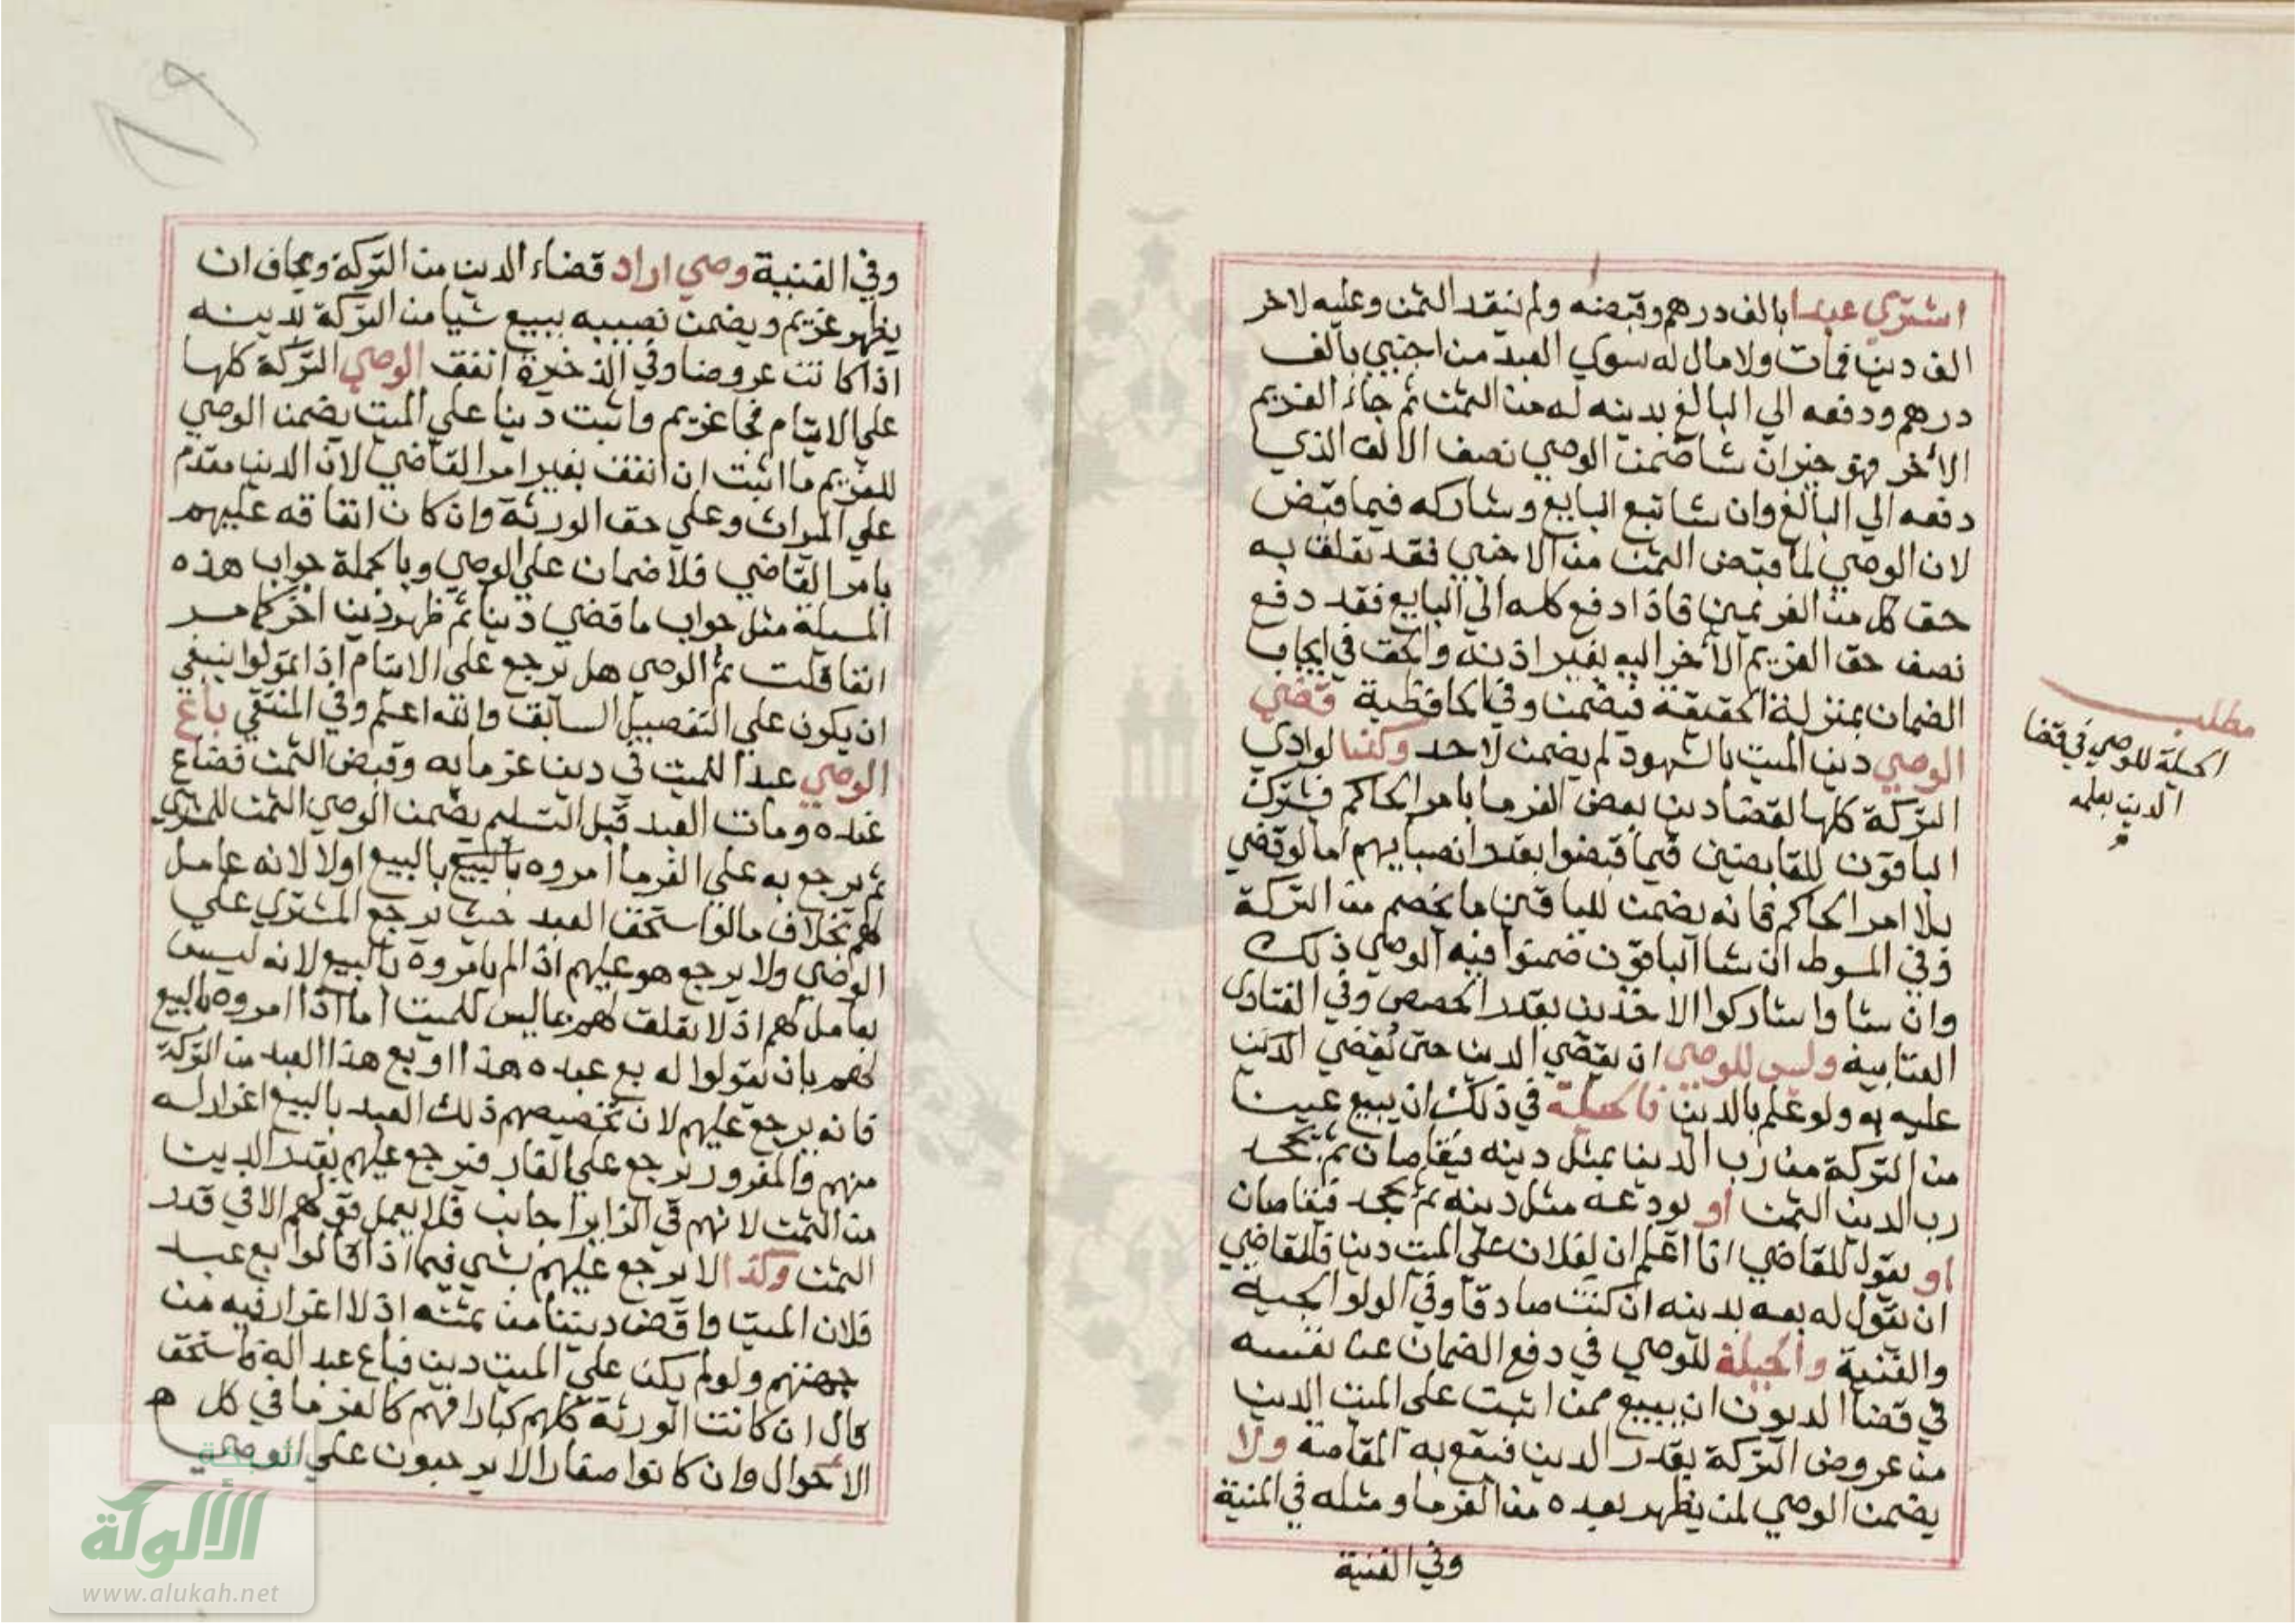 اشتري عبدا بالف درهم وقبضه ولم ينقد الثمن وعليه لاخر
الف دين فمات ولا مال له سوي العبد من اجنبي بالف
درهم ودفعه الي البالغ بدينه له من الثمن ثم جاء الغريم
الأخر فهو خير ان شا ضمن الوصي نصف الالف الذي
دفعه الي البالغ وان شا تبع البايع وشاركه فيما قبض
لان الوصي لما قبض الثمن من الاجنبي فقد تعلق به
حق كل من الغريمين فاذا دفع كله الي البايع فقد دفع
نصف حق الغريم الأخر اليه بغير اذنه والحق في ايجاب
الضمان بمنزلة الحقيقة فيضمن وفي الحافظية قضي
الوصي دين الميت بالشهود لم يضمن لاحد وكذا لو ادي
التركة كلها لقضا دين بعض الغرما بامر الحاكم فيشترك
الباقون للقابضين فيما قبضوا بقدر انصبايهم اما لو قضي
بلا امر الحاكم فانه يضمن للباقين ما يخصم من التركة
وفي المسوط ان شا الباقون ضمنوا فيه الوصي ذلك
وان شاوا شاركوا الاخذين بقدر الحصص وفي الفتاوى
العتابية وليس للوصي ان يقضي الدين حتى يقضي الدين
عليه به ولو علم بالدين فالحيلة في ذلك ان يبيع عينا
من التركة من رب الدين بمثل دينه فيقاصان ثم يجحد
رب الدين الثمن او يودعه مثل دينه ثم يجحد فيتقاصان
او يقول للقاضي انا اعلم ان لفلان علي الميت دينا فللقاضي
ان يقول له بعه بدينه ان كنت صادقا وفي الولوالجية
والقنية والحيلة للوصي في دفع الضمان عن نفسه
في قضا الديون ان يبيع ممن اثبت على الميت الدين
من عروض التركة بقدر الدين فيقع به المقاصة ولا
يضمن الوصي لمن يظهر بعده من الغرما ومثله في المنية
وفي القنية
مطلب
الحيلة للوصي في قضا
الدين بعلمه
وفي القنية وصي اراد قضاء الدين من التركة ويخاف ان
يظهر غريم ويضمن نصيبه يبيع شيا من التركة لدينه
اذا كانت عروضا وفي الذخيرة انفق الوصي التركة كلها
علي الايتام فجا غريم واثبت دينا علي الميت يضمن الوصي
للغريم ما اثبت ان انفق بغير امر القاضي لان الدين مقدم
علي الميراث وعلي حق الورثة وان كان انفاقه عليهم
بامر القاضي فلا ضمان علي الوصي وبالجملة جواب هذه
المسيلة مثل جواب ما قضي دينا ثم ظهر دين اخر كما مر
انفا قلت ثم الوصي هل يرجع علي الايتام اذا تمولوا ينبغي
ان يكون علي التفصيل السابق والله اعلم وفي المنتقي باع
الوصي عبدا للميت في دين غرمايه وقبض الثمن فضاع
عنده ومات العبد قبل التسليم يضمن الوصي الثمن للمشتري
ثم يرجع به علي الغرما امروه بالبيع بالبيع اولا لانه عامل
لهم بخلاف ما لو استحق العبد حيث يرجع المشتري علي
الوصي ولا يرجع هو عليهم اذا لم يامروه بالبيع لانه ليس
بعامل لهم اذ لا تعلق لهم بما ليس للميت اما اذا امروه بالبيع
لهم بان يقولوا له بع عبده هذا او بع هذا العبد من التركة
فانه يرجع عليهم لان تخصيصهم ذلك العبد بالبيع اغرار له
منهم والمغرور يرجع علي الغار فيرجع عليهم بقدر الدين
من الثمن لانهم في الزايد اجانب فلا يعمل قولهم الا في قدر
الثمن وكذا لا يرجع عليهم بشي فيما اذا قالوا بع عبد
فلان الميت واقض ديننا من ثمنه اذ لا اغرار فيه من
جهتهم ولو لم يكن علي الميت دين فباع عبد اله فاستحق
قال ان كانت الورثة كلهم كبارا فهم كالغرما في كل
الأحوال وان كانوا صغارا لا يرجعون علي الوصي
شبكة
الألوكة
www.alukah.net